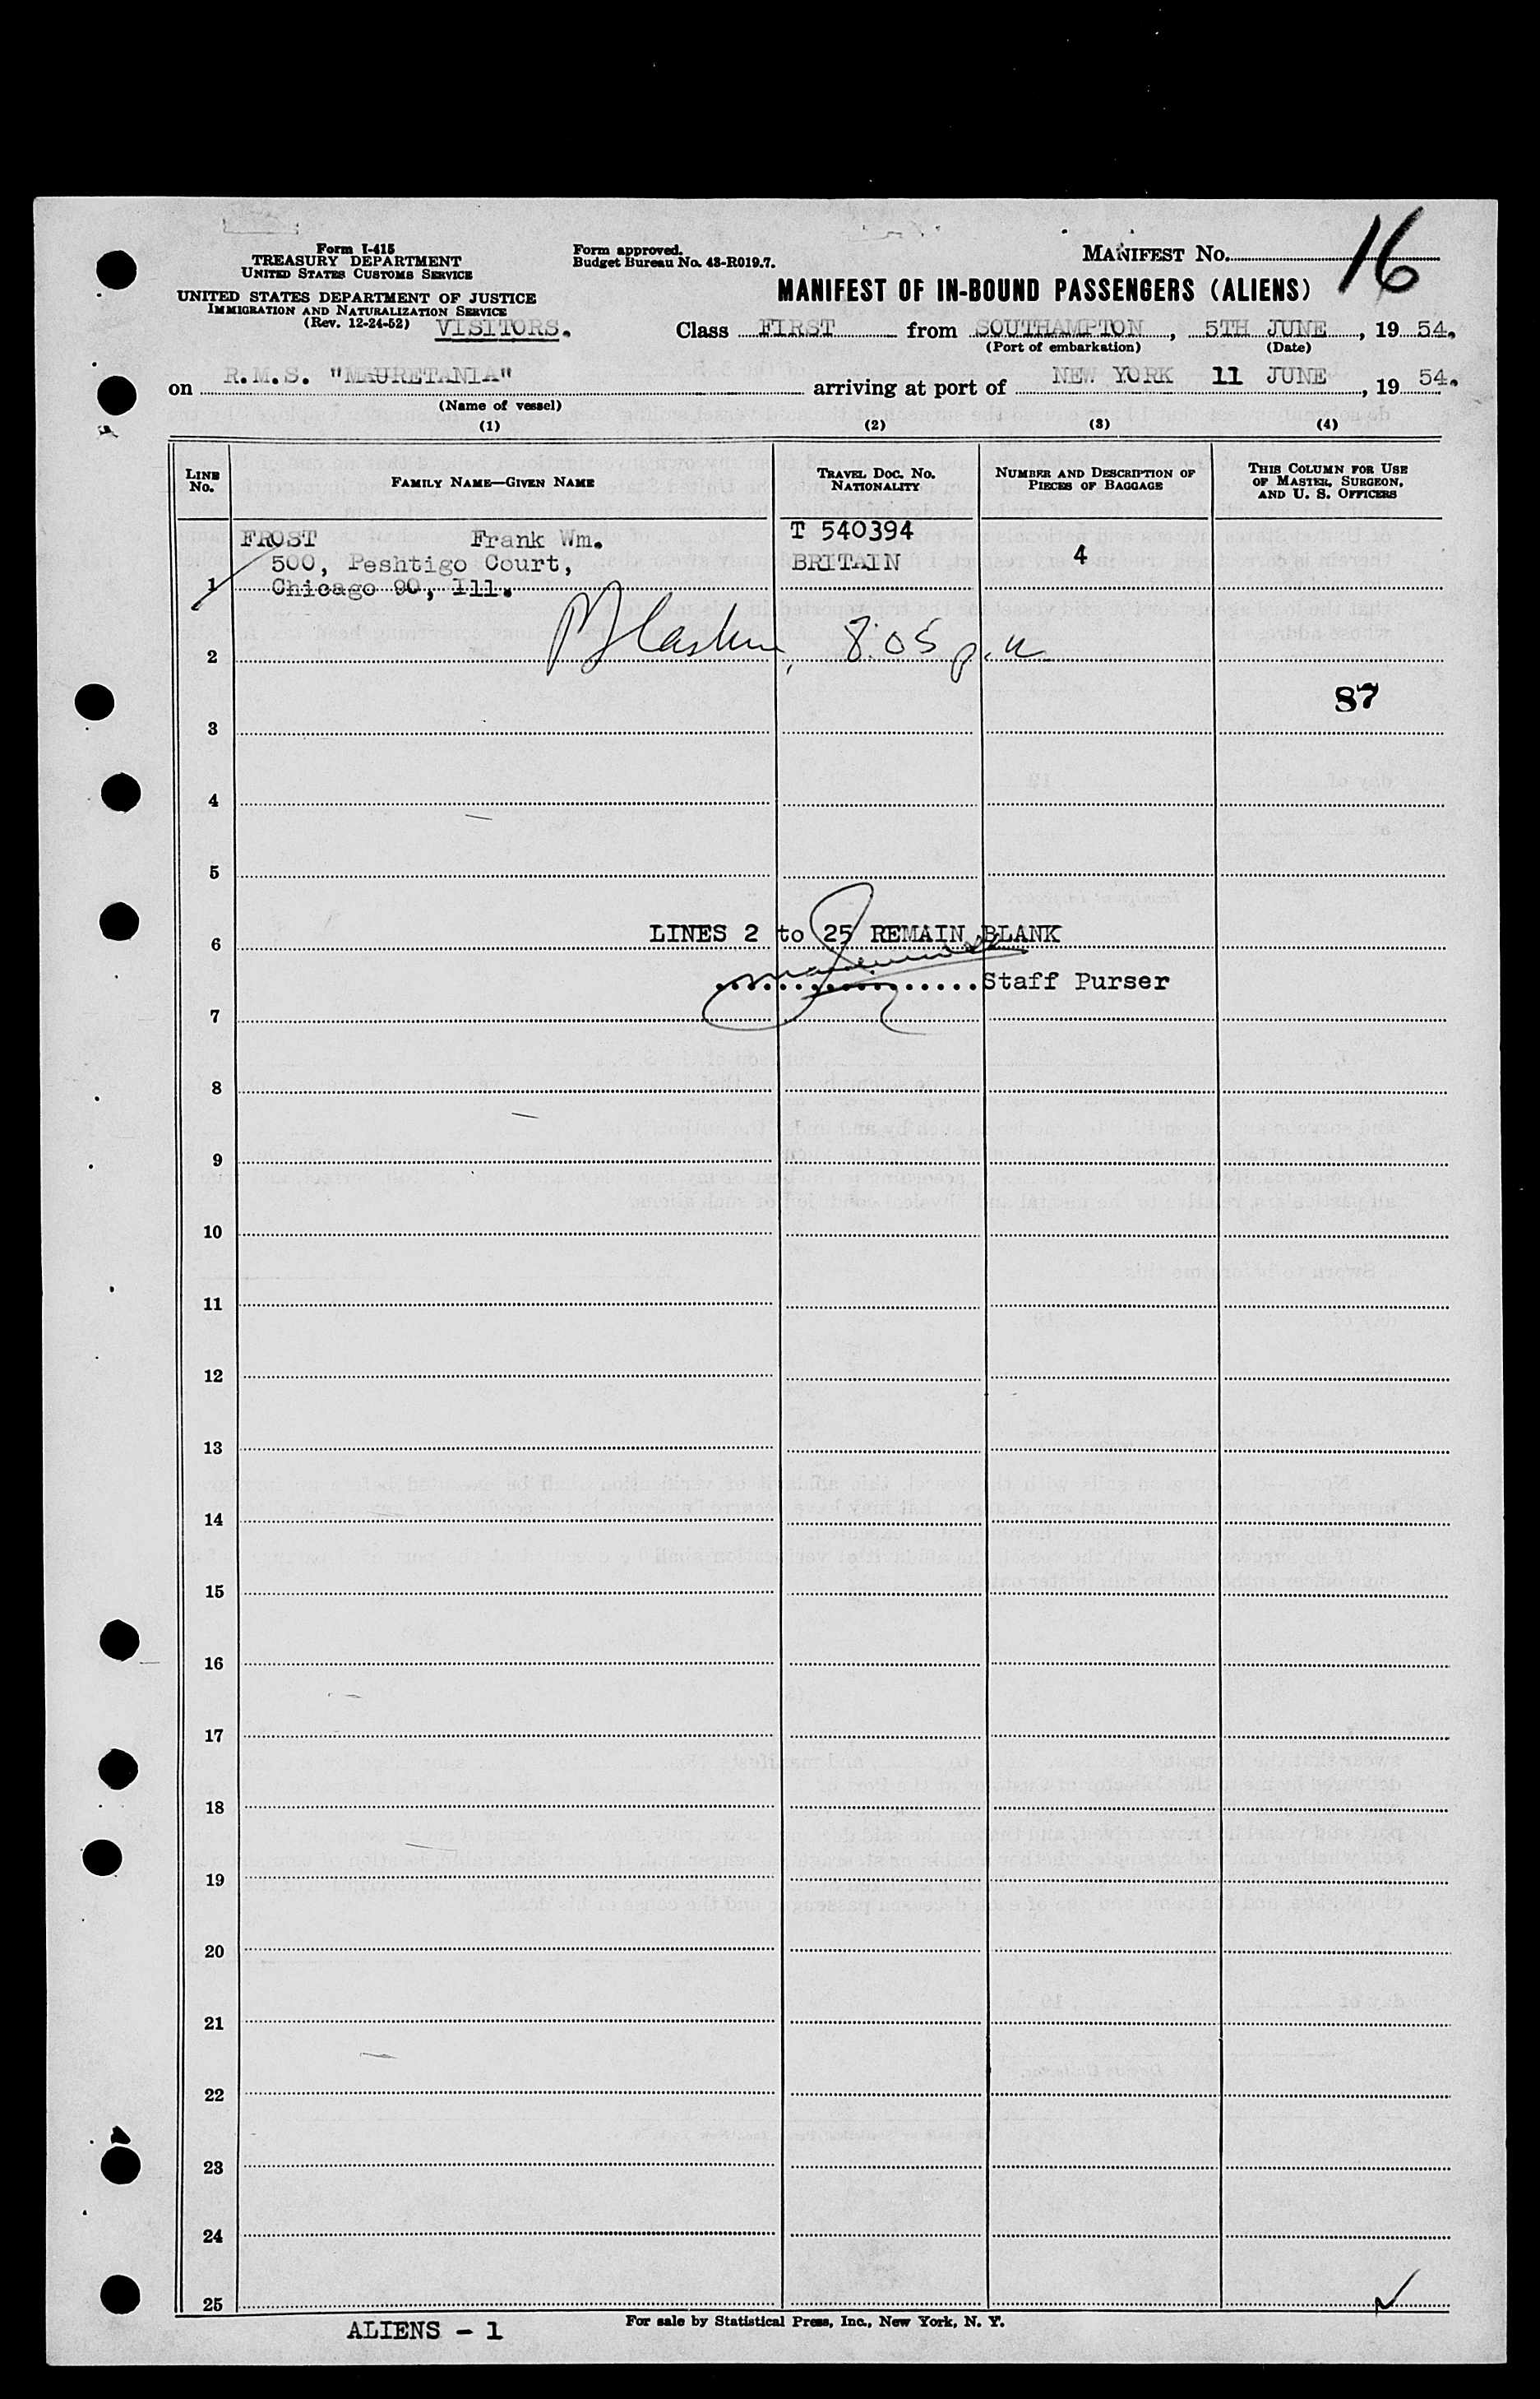 Form I-415
TREASURY DEPARTMENT
UNITED STATES CUSTOMS SERVICE
UNITED STATES DEPARTMENT OF JUSTICE
IMMIGRATION AND NATURALIZATION SERVICE
(Rev. 12-24-52)
VISITORS.
Form approved.
Budget Bureau No. 43-R019.7.
MANIFEST No. 16
MANIFEST OF IN-BOUND PASSENGERS (ALIENS)
Class FIRST from SOUTHAMPTON, 5TH JUNE, 19 54.
(Port of embarkation) (Date)
on R.M.S. "MAURETANIA" arriving at port of NEW YORK 11 JUNE, 19 54.
(Name of vessel)
(1) (2) (3) (4)
LINE No. FAMILY NAME—GIVEN NAME TRAVEL DOC. NO. NATIONALITY NUMBER AND DESCRIPTION OF PIECES OF BAGGAGE THIS COLUMN FOR USE OF MASTER, SURGEON, AND U. S. OFFICERS
FROST Frank Wm. T 540394
500, Peshtigo Court, BRITAIN 4
1 Chicago 90, Ill.
2 8:05 p.m
87
3
4
5
6 LINES 2 to 25 REMAIN BLANK
Staff Purser
7
8
9
10
11
12
13
14
15
16
17
18
19
20
21
22
23
24
25
ALIENS - 1
For sale by Statistical Press, Inc., New York, N. Y.